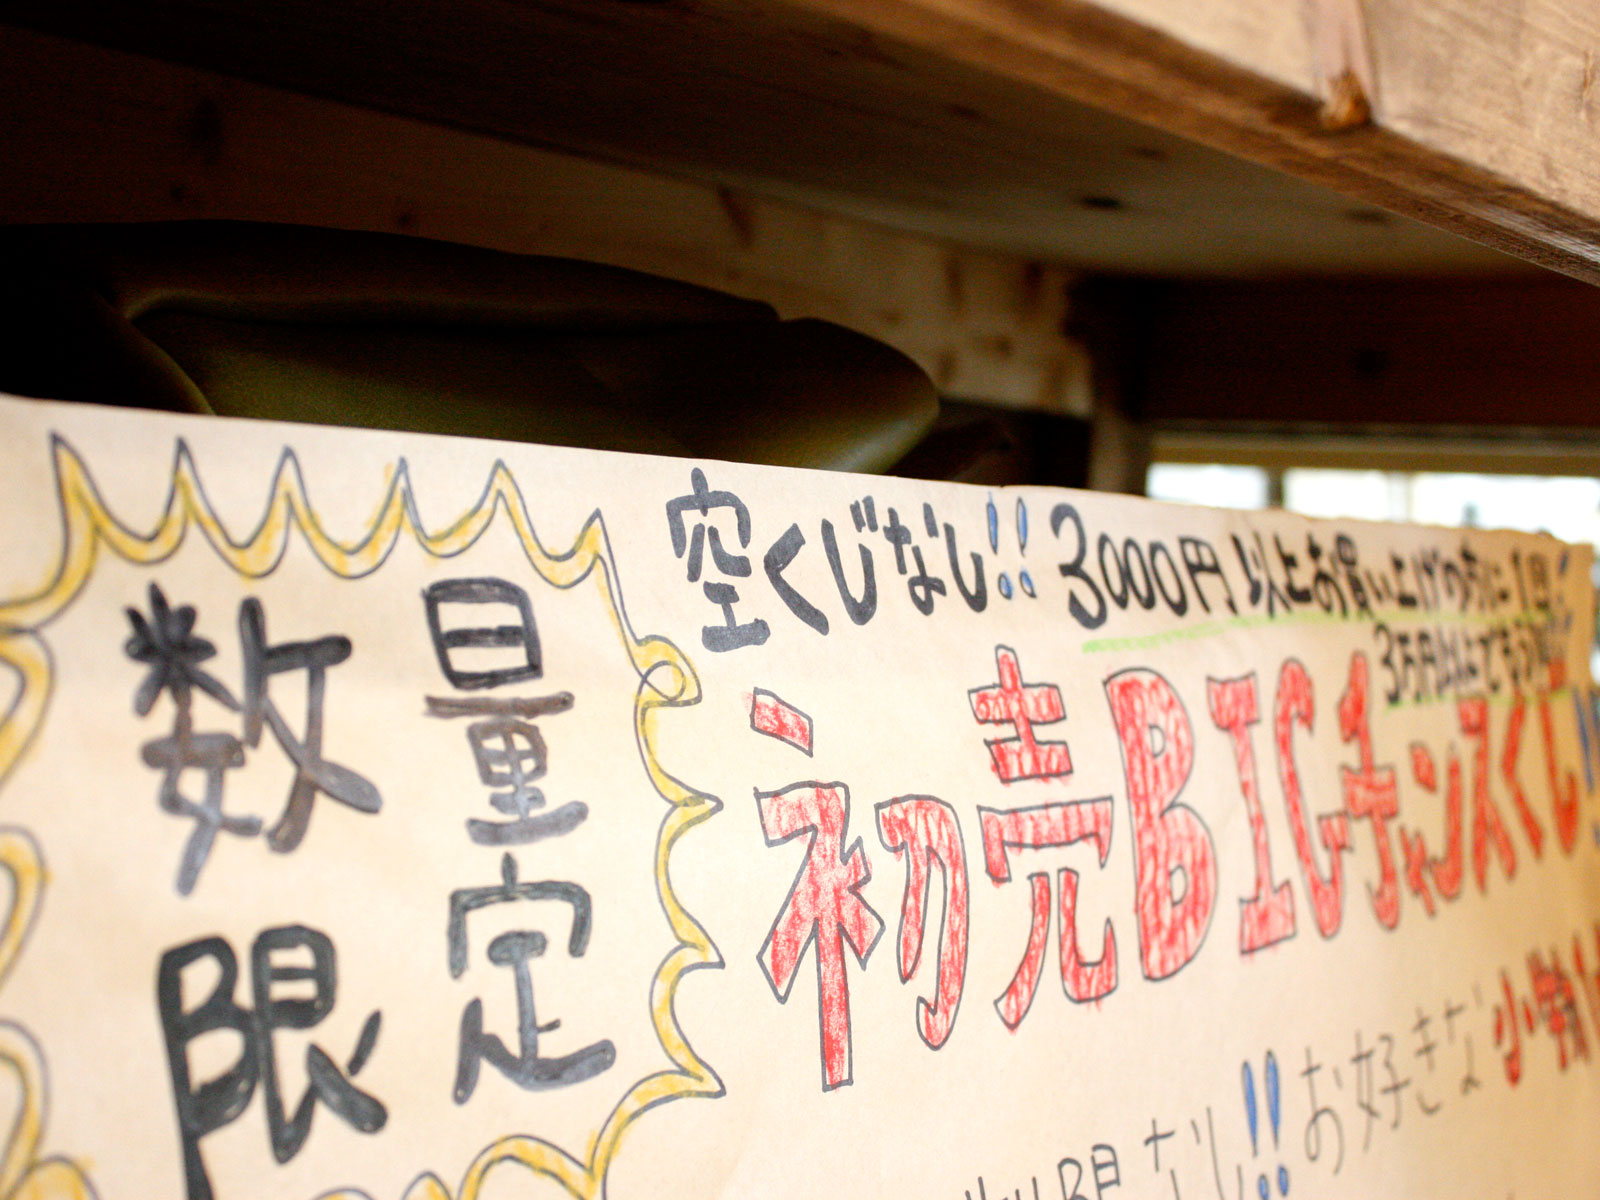 数量
限定
空くじなし!! 3000円以上お買い上げの方に1回
初売BIGチャンスくじ!!
限なし!! お好きな小物